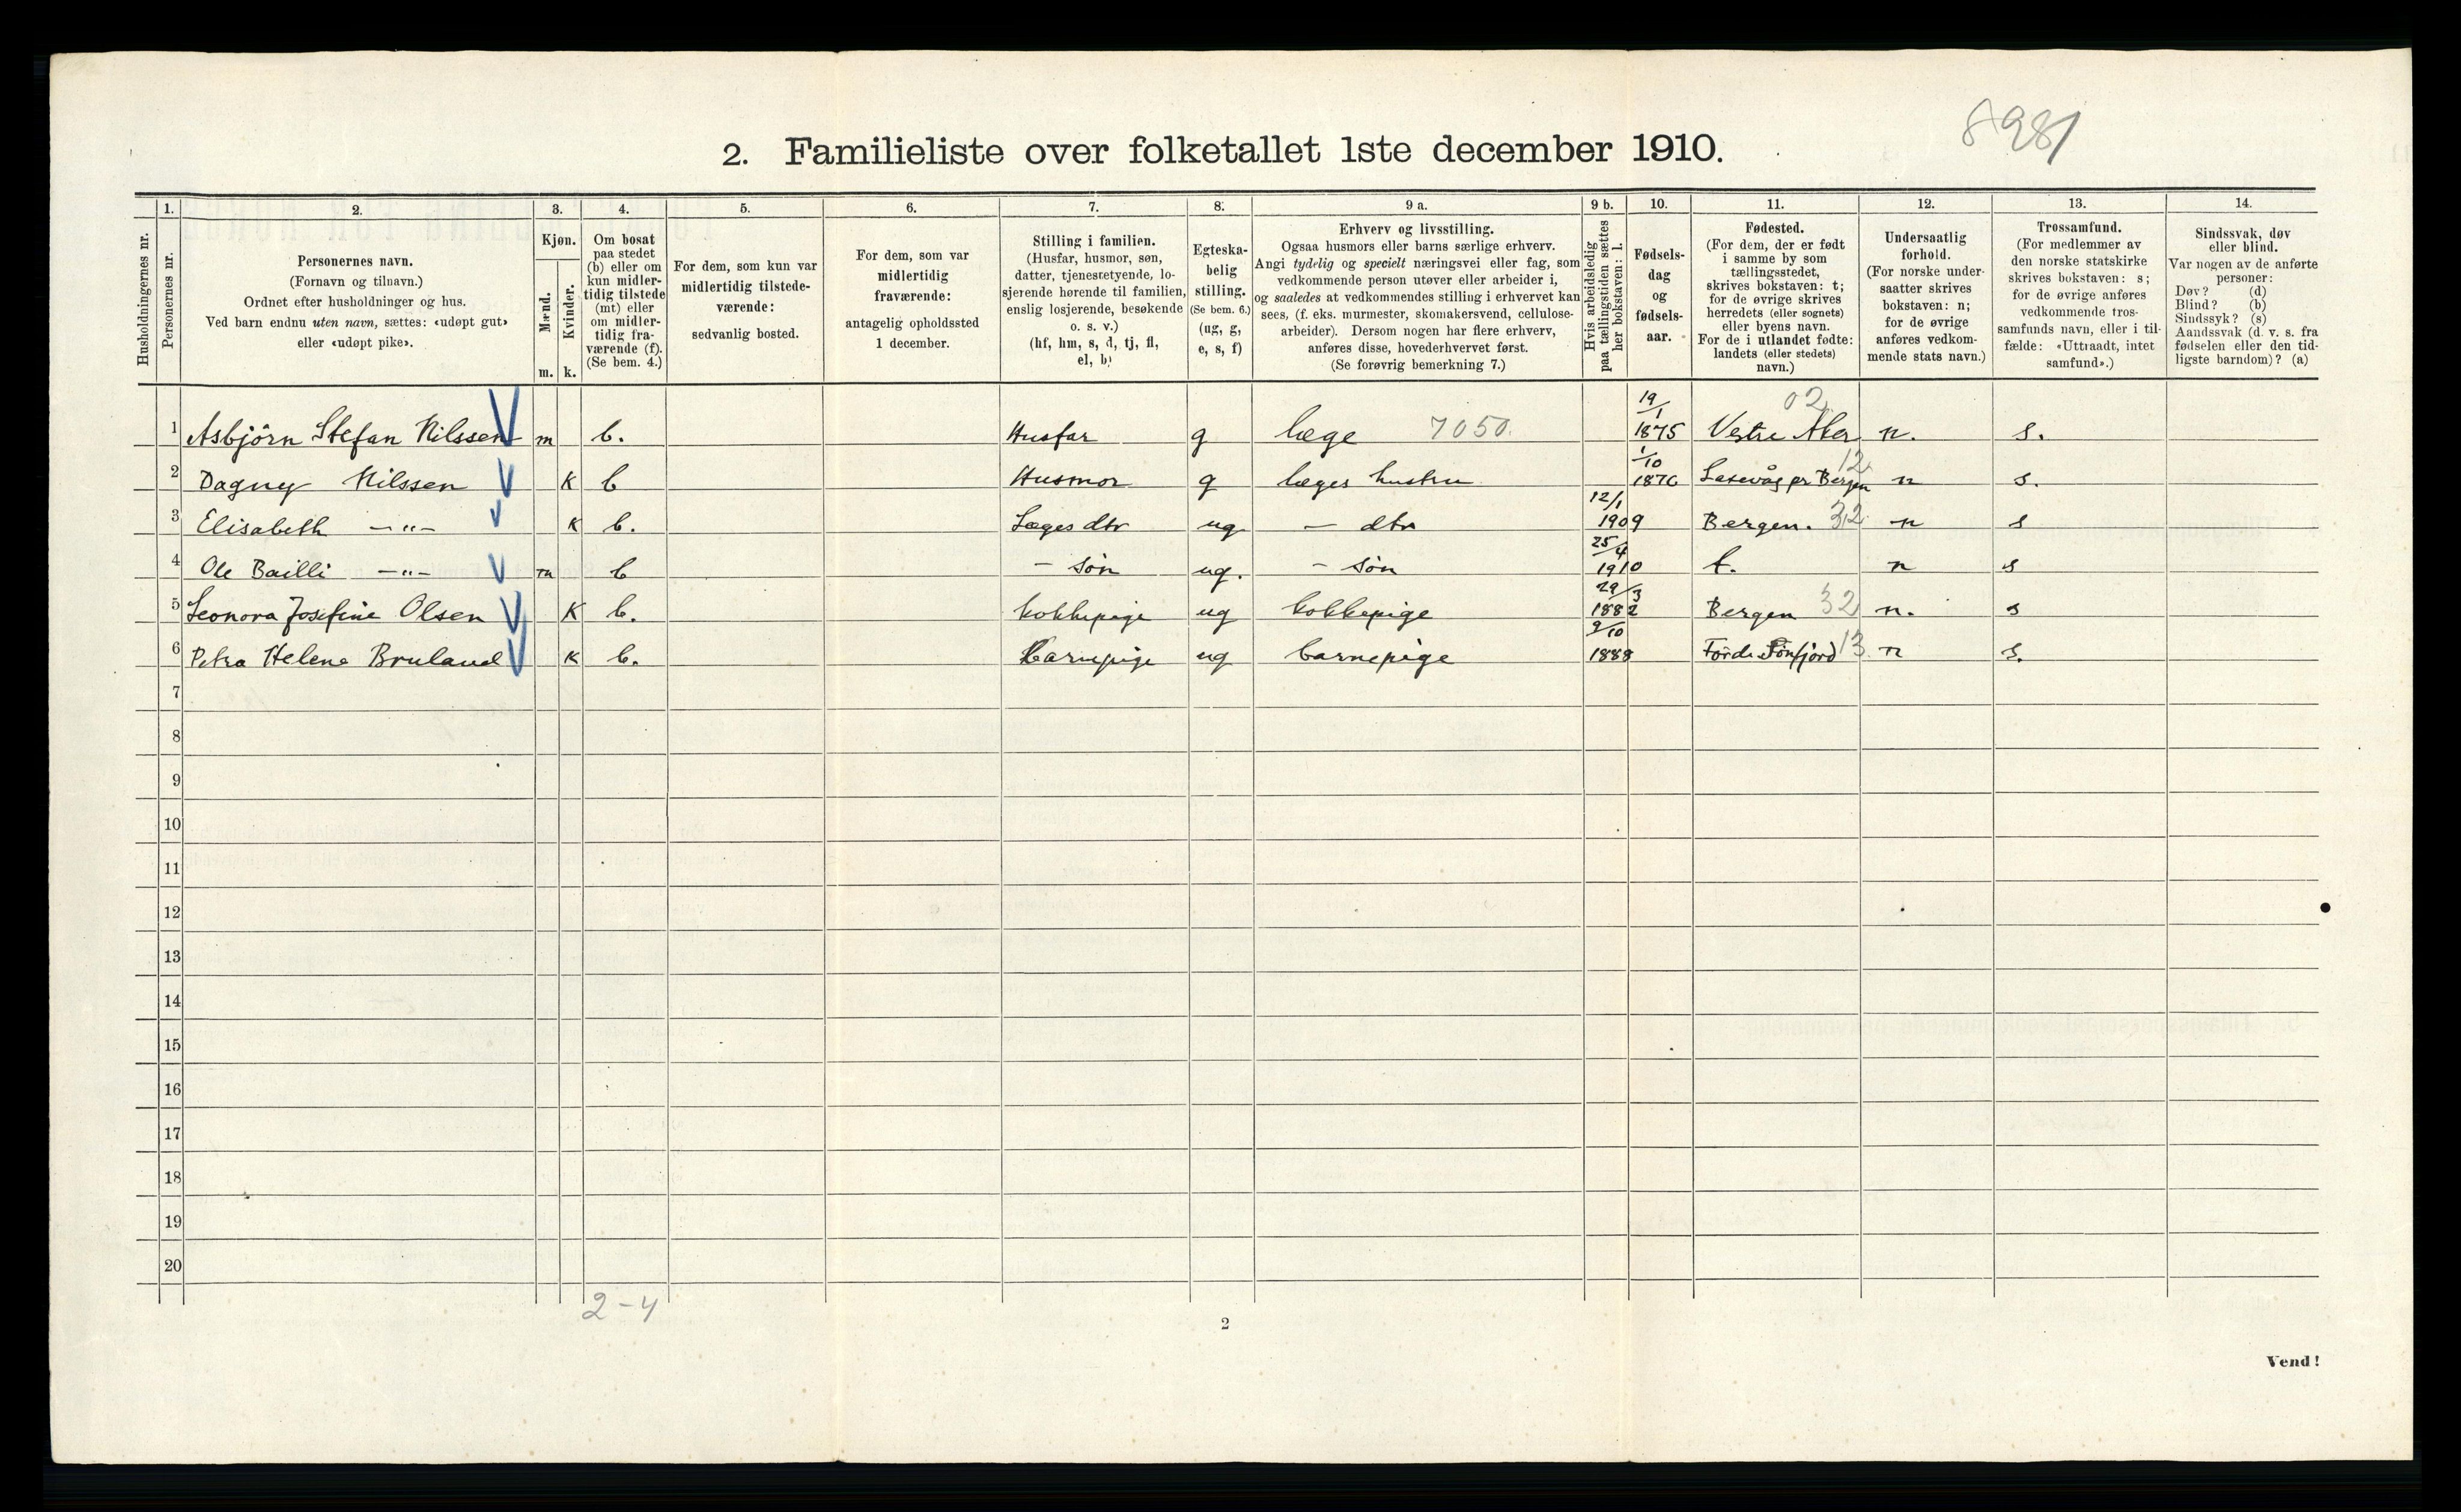 8981
2. Familieliste over folketallet 1ste december 1910.
Husholdningernes nr.
1.
Personernes nr.
2.
Personernes navn.
(Fornavn og tilnavn.)
Ordnet efter husholdninger og hus.
Ved barn endnu uten navn, sættes: «udøpt gut»
eller «udøpt pike».
3.
Kjøn.
Mænd.
Kvinder.
m. k.
4.
Om bosat
paa stedet
(b) eller om
kun midler-
tidig tilstede
(mt) eller
om midler-
tidig fra-
værende (f).
(Se bem. 4.)
5.
For dem, som kun var
midlertidig tilstede-
værende:
sedvanlig bosted.
6.
For dem, som var
midlertidig
fraværende:
antagelig opholdssted
1 december.
7.
Stilling i familien.
(Husfar, husmor, søn,
datter, tjenestetyende, lo-
sjerende hørende til familien,
enslig losjerende, besøkende
o. s. v.)
(hf, hm, s, d, tj, fl,
el, b)
8.
Egteska-
belig
stilling.
(Se bem. 6.)
(ug, g,
e, s, f)
9 a.
Erhverv og livsstilling.
Ogsaa husmors eller barns særlige erhverv.
Angi tydelig og specielt næringsvei eller fag, som
vedkommende person utøver eller arbeider i,
og saaledes at vedkommendes stilling i erhvervet kan
sees, (f. eks. murmester, skomakersvend, cellulose-
arbeider). Dersom nogen har flere erhverv,
anføres disse, hovederhvervet først.
(Se forøvrig bemerkning 7.)
9 b.
Hvis arbeidsledig
paa tællingstiden sættes
her bokstaven: l.
10.
Fødsels-
dag
og
fødsels-
aar.
11.
Fødested.
(For dem, der er født
i samme by som
tællingsstedet,
skrives bokstaven: t;
for de øvrige skrives
herredets (eller sognets)
eller byens navn.
For de i utlandet fødte:
landets (eller stedets)
navn.)
12.
Undersaatlig
forhold.
(For norske under-
saatter skrives
bokstaven: n;
for de øvrige
anføres vedkom-
mende stats navn.)
13.
Trossamfund.
(For medlemmer av
den norske statskirke
skrives bokstaven: s;
for de øvrige anføres
vedkommende tros-
samfunds navn, eller i til-
fælde: «Uttraadt, intet
samfund».)
14.
Sindssvak, døv
eller blind.
Var nogen av de anførte
personer:
Døv? (d)
Blind? (b)
Sindssyk? (s)
Aandssvak (d. v. s. fra
fødselen eller den tid-
ligste barndom)? (a)
1 Asbjörn Stefan Nilssen m b. Husfar g læge 7050. 19/1 1875 Vestre Aker 02 n. s.
2 Dagny Nilssen K b Husmor g læges hustru 1/10 1876 Laxevåg pr Bergen 12 n s.
3 Elisabeth —"— K b. Læges dtr ug — dtr 12/1 1909 Bergen. 32 n s
4 Ole Bailli —"— m b — sön ug. — sön 25/4 1910 t. n s
5 Leonora Josefine Olsen K b. kokkepige ug kokkepige 29/3 1882 Bergen 32 n. s
6 Petra Helene Bruland K b. Barnepige ug barnepige 9/10 1888 Förde Sönfjord 13 n s.
7
8
9
10
11
12
13
14
15
16
17
18
19
20
2 – 4
2
Vend!